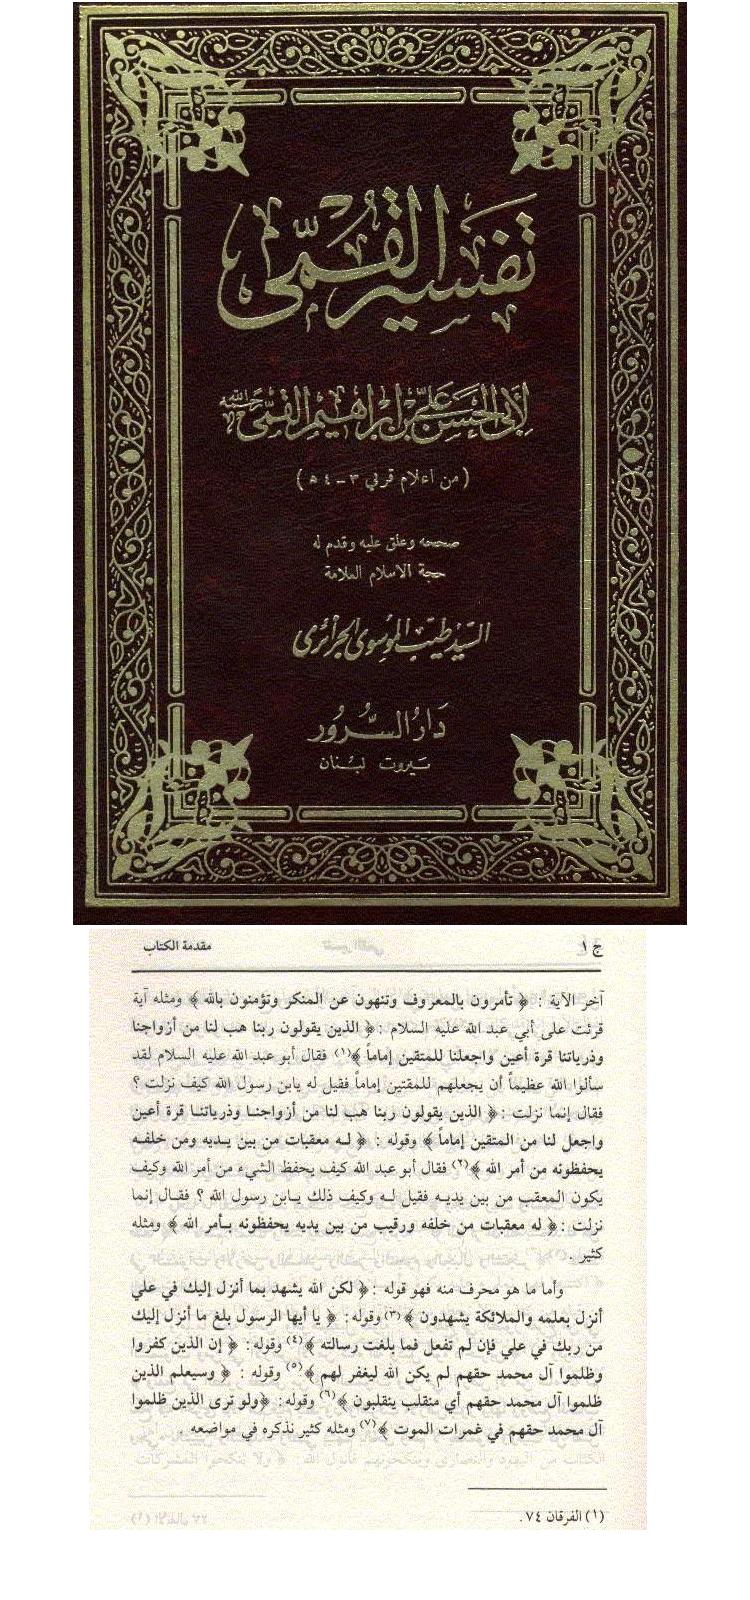 تفسير القمى
لابى الحسن على بن ابراهيم القمى رحمه الله
(من اعلام قرني ٣ - ٤ هـ)
صححه وعلق عليه وقدم له
حجة الاسلام العلامة
السيد طيب الموسوى الجزائرى
دار السرور
بيروت لبنان
ج ١ مقدمة الكتاب
آخر الآية : ﴿ تأمرون بالمعروف وتنهون عن المنكر وتؤمنون بالله ﴾ ومثله آية
قرئت على أبي عبد الله عليه السلام : ﴿ الذين يقولون ربنا هب لنا من أزواجنا
وذرياتنا قرة أعين واجعلنا للمتقين إماماً ﴾(١) فقال أبو عبد الله عليه السلام لقد
سألوا الله عظيماً أن يجعلهم للمقتين إماماً فقيل له يابن رسول الله كيف نزلت ؟
فقال إنما نزلت : ﴿ الذين يقولون ربنا هب لنا من أزواجنا وذرياتنا قرة أعين
واجعل لنا من المتقين إماماً ﴾ وقوله : ﴿ له معقبات من بين يديه ومن خلفه
يحفظونه من أمر الله ﴾(٢) فقال أبو عبد الله كيف يحفظ الشيء من أمر الله وكيف
يكون المعقب من بين يديه فقيل له وكيف ذلك يابن رسول الله ؟ فقال إنما
نزلت : ﴿ له معقبات من خلفه ورقيب من بين يديه يحفظونه بأمر الله ﴾ ومثله
كثير .
وأما ما هو محرف منه فهو قوله : ﴿ لكن الله يشهد بما أنزل إليك في علي
أنزل بعلمه والملائكة يشهدون ﴾(٣) وقوله : ﴿ يا أيها الرسول بلغ ما أنزل إليك
من ربك في علي فإن لم تفعل فما بلغت رسالته ﴾(٤) وقوله : ﴿ إن الذين كفروا
وظلموا آل محمد حقهم لم يكن الله ليغفر لهم ﴾(٥) وقوله : ﴿ وسيعلم الذين
ظلموا آل محمد حقهم أي منقلب ينقلبون ﴾(٦) وقوله : ﴿ولو ترى الذين ظلموا
آل محمد حقهم في غمرات الموت ﴾(٧) ومثله كثير نذكره في مواضعه .
(١) الفرقان ٧٤.